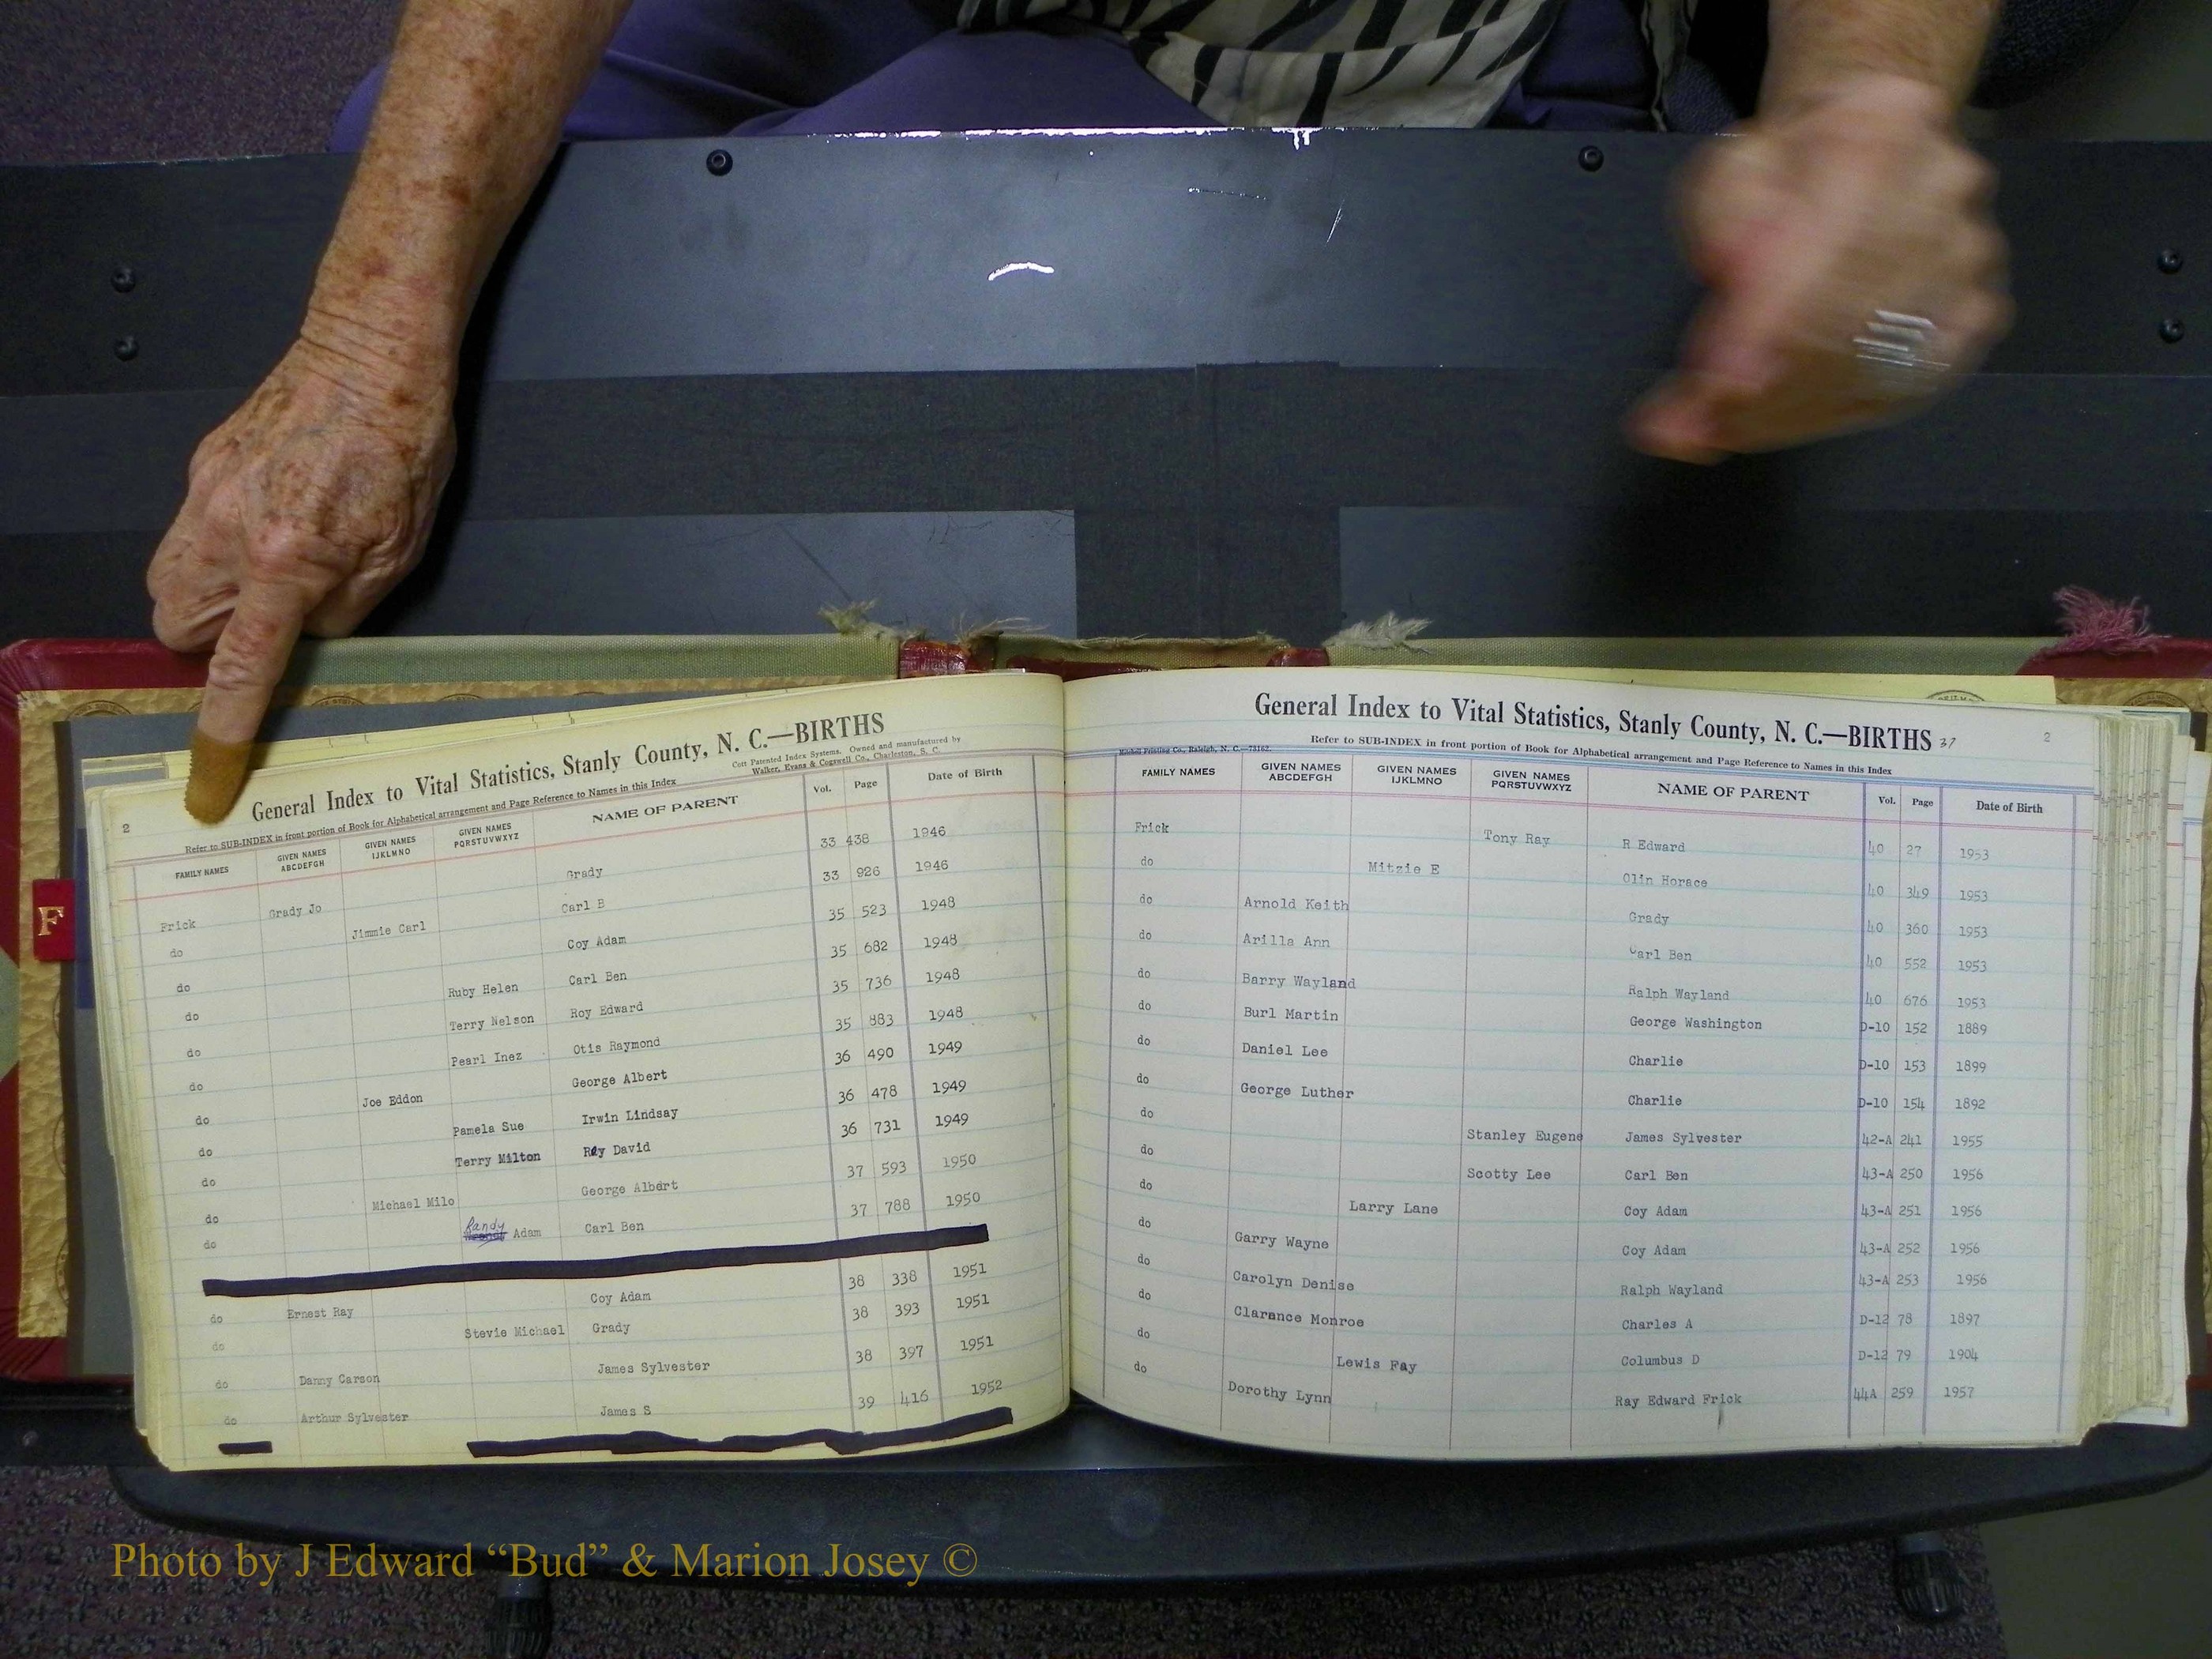 F
2
General Index to Vital Statistics, Stanly County, N. C.—BIRTHS
Refer to SUB-INDEX in front portion of Book for Alphabetical arrangement and Page Reference to Names in this Index
Cott Patented Index Systems. Owned and manufactured by
Walker, Evans & Cogswell Co., Charleston, S. C.
FAMILY NAMES GIVEN NAMES ABCDEFGH GIVEN NAMES IJKLMNO GIVEN NAMES PQRSTUVWXYZ NAME OF PARENT Vol. Page Date of Birth
Frick Grady Jo Grady 33 438 1946
do Jimmie Carl Carl B 33 926 1946
do Ruby Helen Coy Adam 35 523 1948
do Terry Nelson Carl Ben 35 682 1948
do Pearl Inez Roy Edward 35 736 1948
do Joe Eddon Otis Raymond 35 883 1948
do Pamela Sue George Albert 36 490 1949
do Terry Milton Irwin Lindsay 36 478 1949
do Roy David 36 731 1949
do Michael Milo George Albert 37 593 1950
do Randy Adam Carl Ben 37 788 1950
do Ernest Ray Coy Adam 38 338 1951
do Stevie Michael Grady 38 393 1951
do Danny Carson James Sylvester 38 397 1951
do Arthur Sylvester James S 39 416 1952
General Index to Vital Statistics, Stanly County, N. C.—BIRTHS 37
2
Mitchell Printing Co., Raleigh, N. C.—75162.
Refer to SUB-INDEX in front portion of Book for Alphabetical arrangement and Page Reference to Names in this Index
FAMILY NAMES GIVEN NAMES ABCDEFGH GIVEN NAMES IJKLMNO GIVEN NAMES PQRSTUVWXYZ NAME OF PARENT Vol. Page Date of Birth
Frick Tony Ray R Edward 40 27 1953
do Mitzie E Olin Horace 40 349 1953
do Arnold Keith Grady 40 360 1953
do Arilla Ann Carl Ben 40 552 1953
do Barry Wayland Ralph Wayland 40 676 1953
do Burl Martin George Washington D-10 152 1889
do Daniel Lee Charlie D-10 153 1899
do George Luther Charlie D-10 154 1892
do Stanley Eugene James Sylvester 42-A 241 1955
do Scotty Lee Carl Ben 43-A 250 1956
do Larry Lane Coy Adam 43-A 251 1956
do Garry Wayne Coy Adam 43-A 252 1956
do Carolyn Denise Ralph Wayland 43-A 253 1956
do Clarance Monroe Charles A D-12 78 1897
do Lewis Fay Columbus D D-12 79 1904
do Dorothy Lynn Ray Edward Frick 44A 259 1957
Photo by J Edward “Bud” & Marion Josey ©